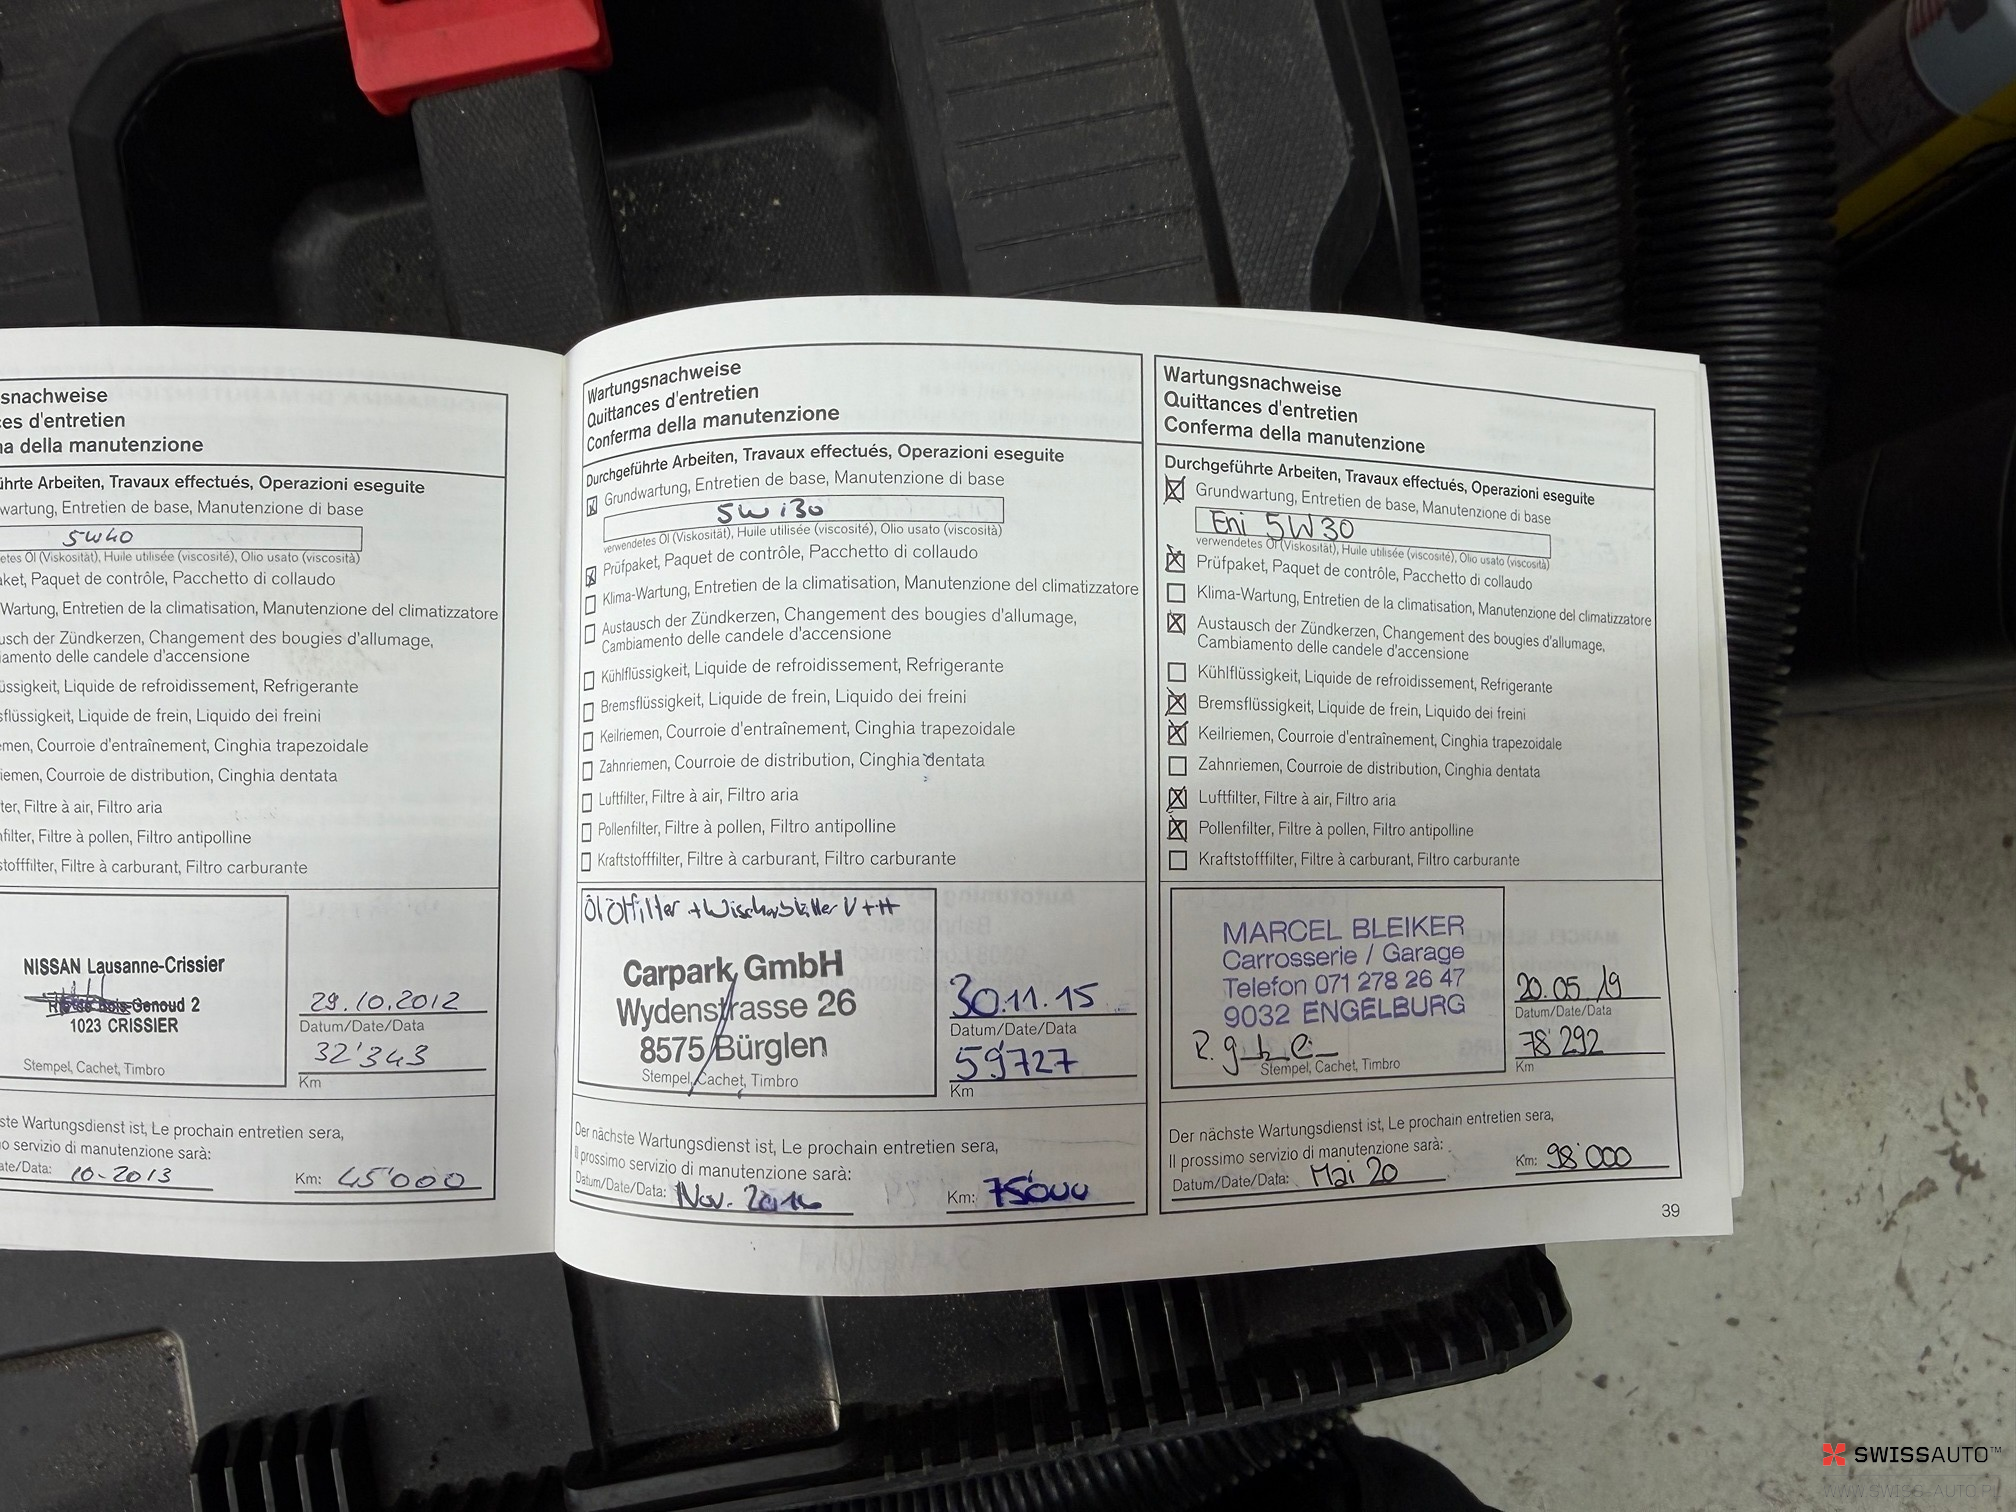 snachweise
es d'entretien
a della manutenzione
ührte Arbeiten, Travaux effectués, Operazioni eseguite
wartung, Entretien de base, Manutenzione di base
5W40
etes Öl (Viskosität), Huile utilisée (viscosité), Olio usato (viscosità)
aket, Paquet de contrôle, Pacchetto di collaudo
Wartung, Entretien de la climatisation, Manutenzione del climatizzatore
usch der Zündkerzen, Changement des bougies d'allumage,
iamento delle candele d'accensione
üssigkeit, Liquide de refroidissement, Refrigerante
sflüssigkeit, Liquide de frein, Liquido dei freini
emen, Courroie d'entraînement, Cinghia trapezoidale
iemen, Courroie de distribution, Cinghia dentata
ter, Filtre à air, Filtro aria
nfilter, Filtre à pollen, Filtro antipolline
stofffilter, Filtre à carburant, Filtro carburante
NISSAN Lausanne-Crissier
Genoud 2
1023 CRISSIER
Stempel, Cachet, Timbro
29.10.2012
Datum/Date/Data
32'343
Km
ste Wartungsdienst ist, Le prochain entretien sera,
mo servizio di manutenzione sarà:
ate/Data: 10-2013 Km: 45'000
Wartungsnachweise
Quittances d'entretien
Conferma della manutenzione
Durchgeführte Arbeiten, Travaux effectués, Operazioni eseguite
Grundwartung, Entretien de base, Manutenzione di base
5W i30
verwendetes Öl (Viskosität), Huile utilisée (viscosité), Olio usato (viscosità)
Prüfpaket, Paquet de contrôle, Pacchetto di collaudo
Klima-Wartung, Entretien de la climatisation, Manutenzione del climatizzatore
Austausch der Zündkerzen, Changement des bougies d'allumage,
Cambiamento delle candele d'accensione
Kühlflüssigkeit, Liquide de refroidissement, Refrigerante
Bremsflüssigkeit, Liquide de frein, Liquido dei freini
Keilriemen, Courroie d'entraînement, Cinghia trapezoidale
Zahnriemen, Courroie de distribution, Cinghia dentata
Luftfilter, Filtre à air, Filtro aria
Pollenfilter, Filtre à pollen, Filtro antipolline
Kraftstofffilter, Filtre à carburant, Filtro carburante
Öl Ölfilter + Wischerblätter V + H
Carpark GmbH
Wydenstrasse 26
8575 Bürglen
Stempel, Cachet, Timbro
30.11.15
Datum/Date/Data
59'727
Km
Der nächste Wartungsdienst ist, Le prochain entretien sera,
Il prossimo servizio di manutenzione sarà:
Datum/Date/Data: Nov. 2016 Km: 75'000
Wartungsnachweise
Quittances d'entretien
Conferma della manutenzione
Durchgeführte Arbeiten, Travaux effectués, Operazioni eseguite
Grundwartung, Entretien de base, Manutenzione di base
Eni 5W30
verwendetes Öl (Viskosität), Huile utilisée (viscosité), Olio usato (viscosità)
Prüfpaket, Paquet de contrôle, Pacchetto di collaudo
Klima-Wartung, Entretien de la climatisation, Manutenzione del climatizzatore
Austausch der Zündkerzen, Changement des bougies d'allumage,
Cambiamento delle candele d'accensione
Kühlflüssigkeit, Liquide de refroidissement, Refrigerante
Bremsflüssigkeit, Liquide de frein, Liquido dei freini
Keilriemen, Courroie d'entraînement, Cinghia trapezoidale
Zahnriemen, Courroie de distribution, Cinghia dentata
Luftfilter, Filtre à air, Filtro aria
Pollenfilter, Filtre à pollen, Filtro antipolline
Kraftstofffilter, Filtre à carburant, Filtro carburante
MARCEL BLEIKER
Carrosserie / Garage
Telefon 071 278 26 47
9032 ENGELBURG
Stempel, Cachet, Timbro
20.05.19
Datum/Date/Data
78'292
Km
Der nächste Wartungsdienst ist, Le prochain entretien sera,
Il prossimo servizio di manutenzione sarà:
Datum/Date/Data: Mai 20 Km: 98'000
39
SWISSAUTO™